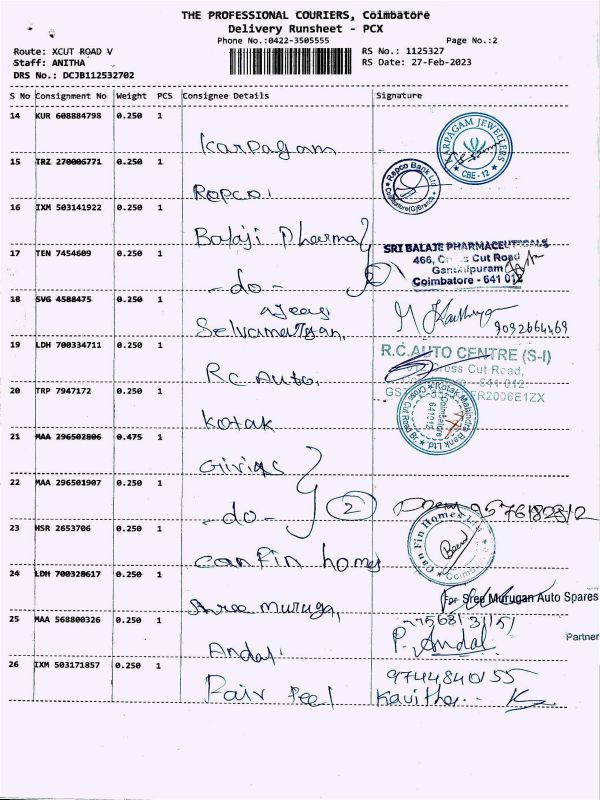 THE PROFESSIONAL COURIERS, Coimbatore
Delivery Runsheet - PCX
Phone No.:0422-3505555
Page No.:2
Route: XCUT ROAD V
RS No.: 1125327
Staff: ANITHA
RS Date: 27-Feb-2023
DRS No.: DCJB112532702
S No Consignment No Weight PCS Consignee Details Signature
14 KUR 608884798 0.250 1
Karpagam
KARPAGAM JEWELLERS
CBE - 12
15 TRZ 270006771 0.250 1
Repco
Repco Bank Ltd
16 IXM 503141922 0.250 1
Balaji Pharma
SRI BALAJE PHARMACEUTICALS
466, Cross Cut Road
Gandhipuram
Coimbatore - 641 012
17 TEN 7454609 0.250 1
-do- 2
18 SVG 4588475 0.250 1
Selvamurugan
9092664469
19 LDH 700334711 0.250 1
RC Auto
R.C.AUTO CENTRE (S-I)
Cross Cut Road,
641 012
ER2006E1ZX
20 TRP 7947172 0.250 1
Kotak
Kotak Mahindra Bank Ltd
Coimbatore
641012
21 MAA 296502806 0.475 1
Girias
22 MAA 296501907 0.250 1
-do- 2
23 HSR 2653706 0.250 1
Can Fin homes
Can Fin Homes Ltd
24 LDH 700328617 0.250 1
Shree Muruga
For Sree Murugan Auto Spares
Partner
25 MAA 568800326 0.250 1
Andal
P. Andal
26 IXM 503171857 0.250 1
Pair Peel
9744840155
Kavitha